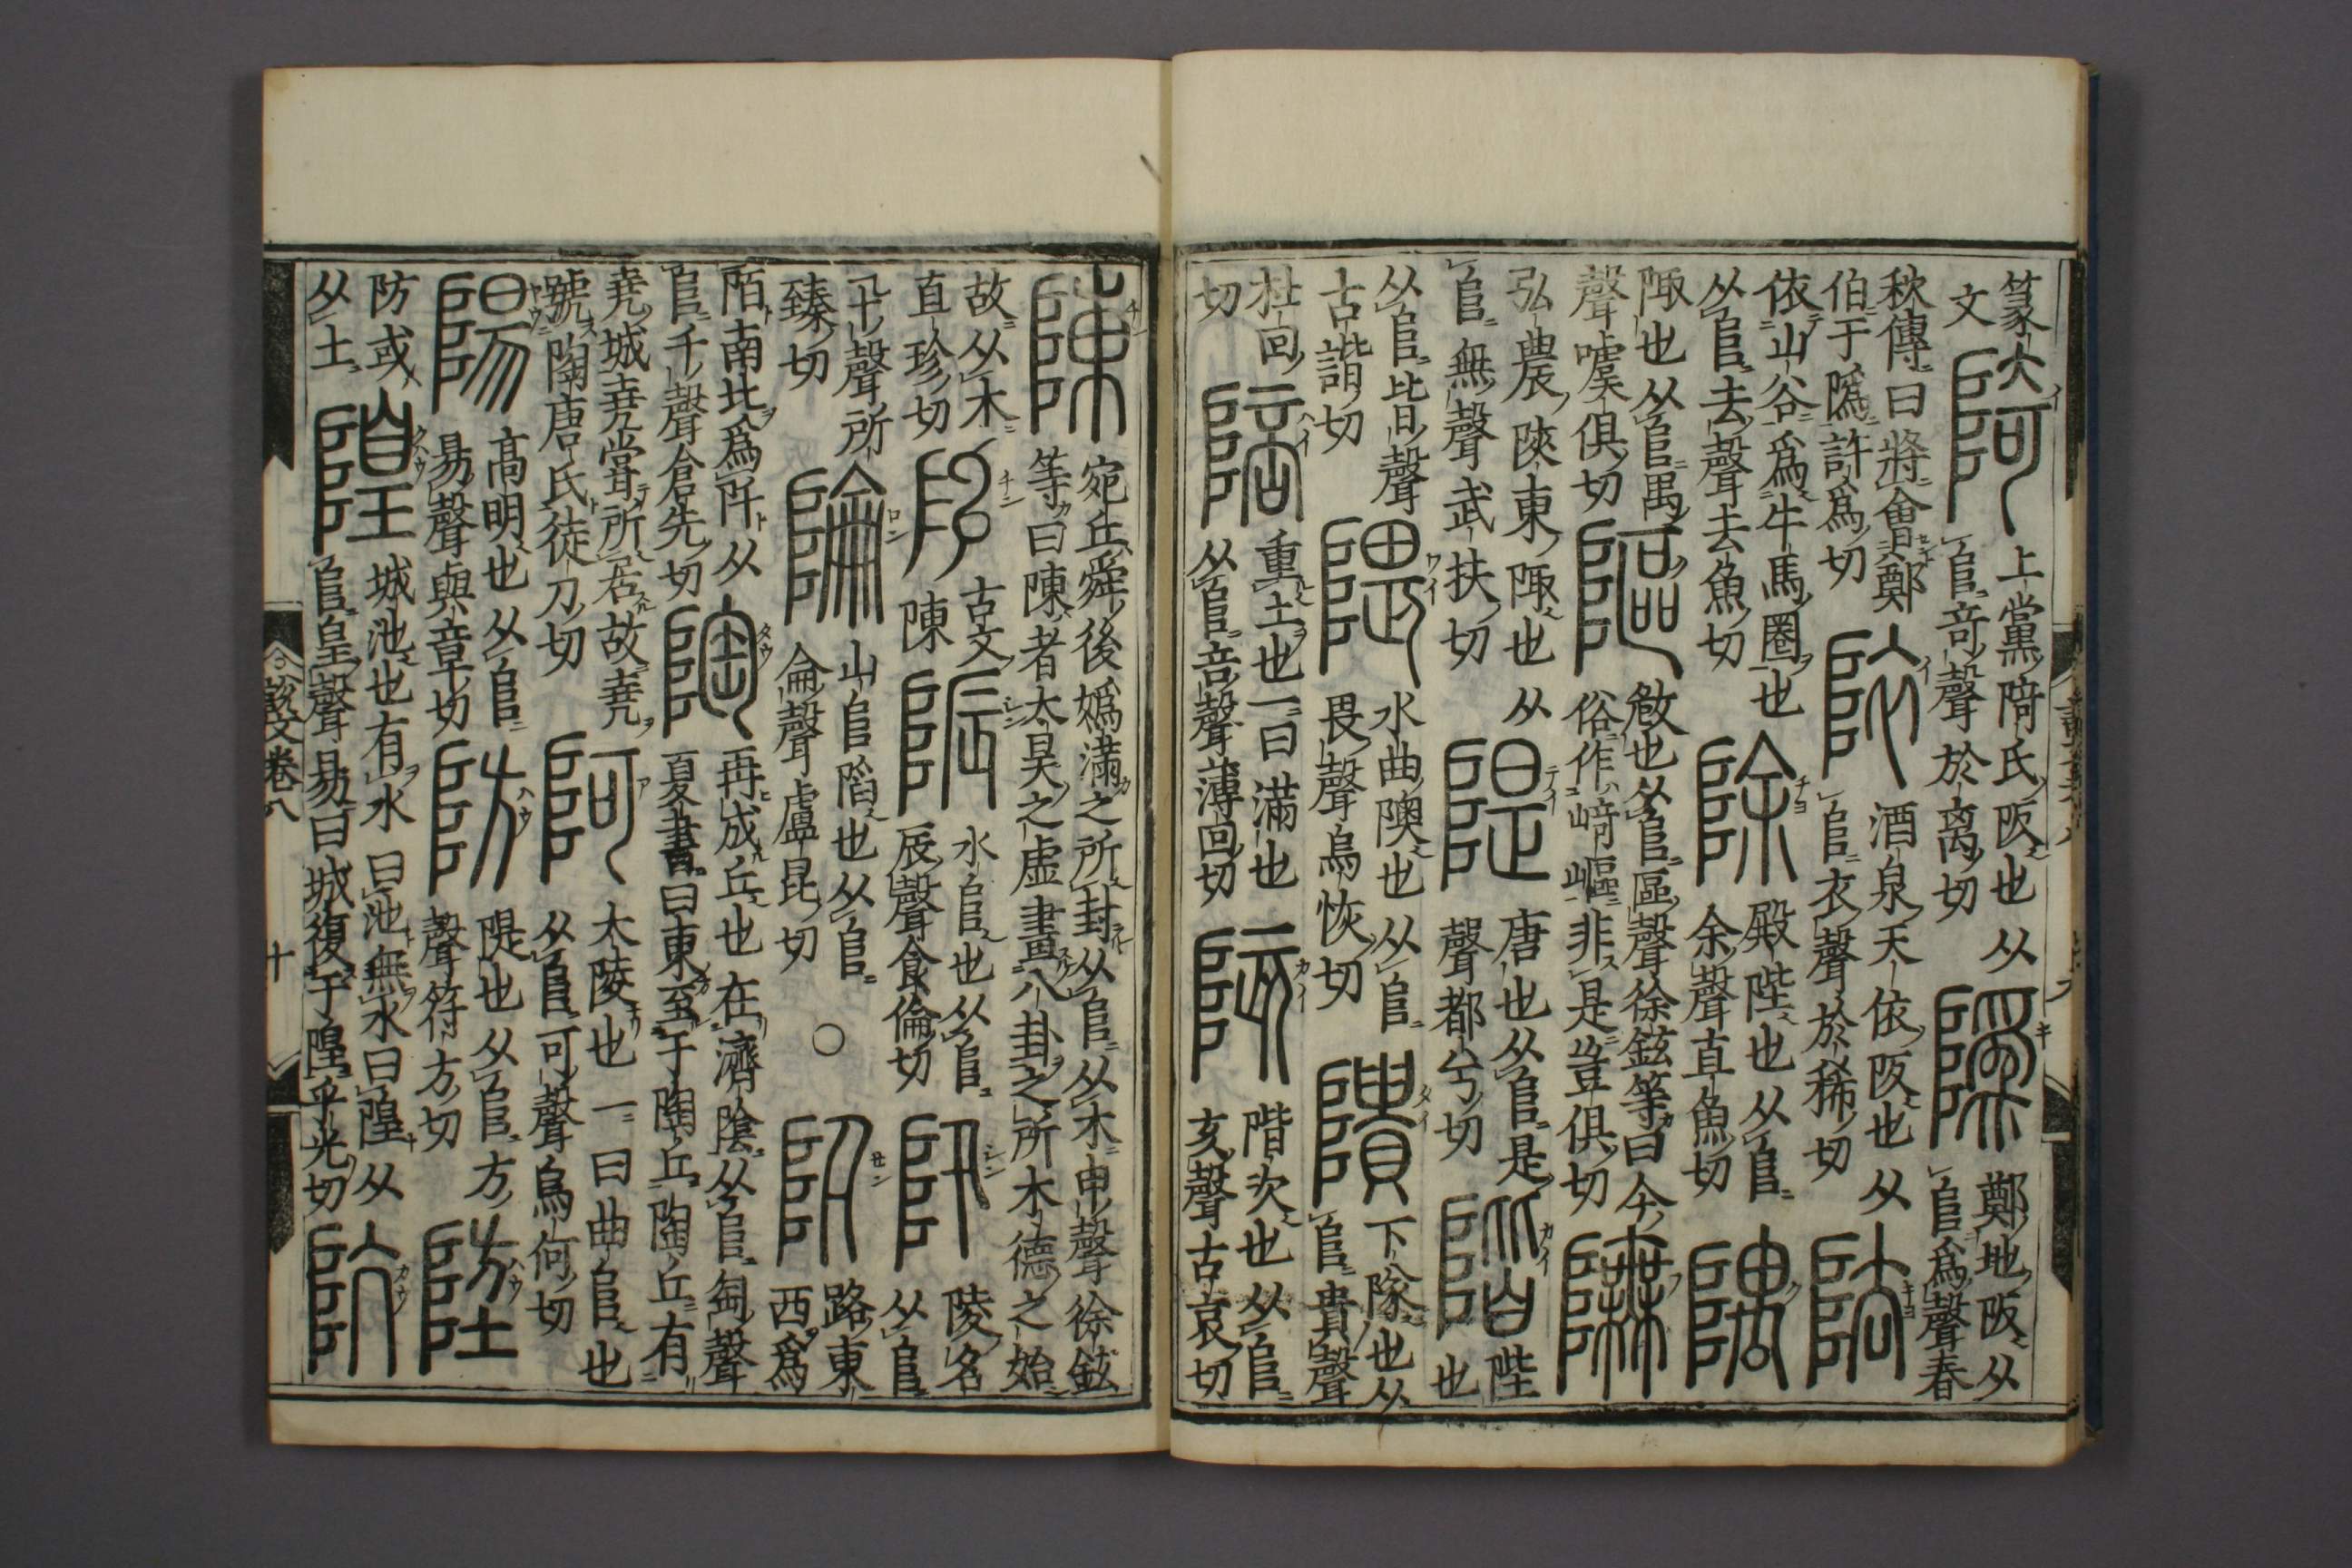 篆
文
陭
上黨陭氏阪也从
𨸏奇聲於离切
鄭地阪从
𨸏爲聲春
秋傳曰將會鄭
伯于 許爲切
酒泉天依阪也从
𨸏衣聲於稀切
阹
依山谷爲牛馬圈也
从𨸏去聲去魚切
除
殿陛也从𨸏
余聲直魚切
隅
陬也从𨸏禺
聲噳俱切
䧢
敧也从𨸏區聲徐鉉等曰今
俗作崎嶇非是豈俱切
弘農陝東陬也从
𨸏無聲武扶切
隄
唐也从𨸏是
聲都兮切
階
陛
也
从𨸏皆聲
古諧切
隈
水曲隩也从𨸏
畏聲烏恢切
隤
下隊也从
𨸏貴聲
杜回
切
陪
重土也一曰滿也
从𨸏咅聲薄回切
陔
階次也从𨸏
亥聲古哀切
陳
宛丘舜後嬀滿之所封从𨸏从木申聲徐鉉
等曰陳者大昊之虛畫八卦之所木德之始
故从木
直珍切
古文
陳
陙
水𨸏也从𨸏
辰聲食倫切
阠
陵名
从𨸏
卂聲所
臻切
陯
山𨸏陷也从𨸏
侖聲盧昆切
○
阡
路東
西爲
陌南北爲阡从
𨸏千聲倉先切
陶
再成丘也在濟陰从𨸏匋聲
夏書曰東至于陶丘陶丘有
堯城堯甞所居故堯
號陶唐氏徒刀切
阿
大陵也一曰曲𨸏也
从𨸏可聲烏何切
陽
高明也从𨸏
昜聲與章切
防
隄也从𨸏方
聲符方切
防或
从土
隍
城池也有水曰池無水曰隍从
𨸏皇聲易曰城復于隍乎光切
阬
說文卷八
十